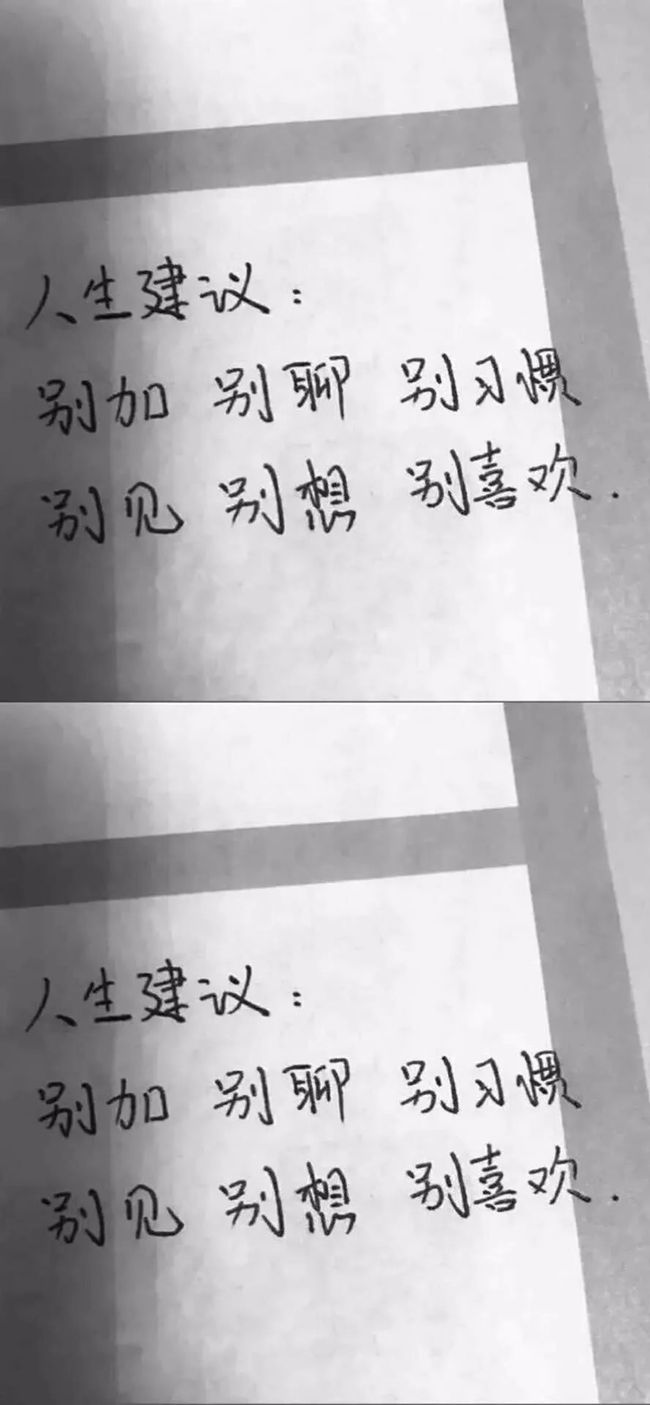 人生建议：
别加 别聊 别习惯
别见 别想 别喜欢.
人生建议：
别加 别聊 别习惯
别见 别想 别喜欢.